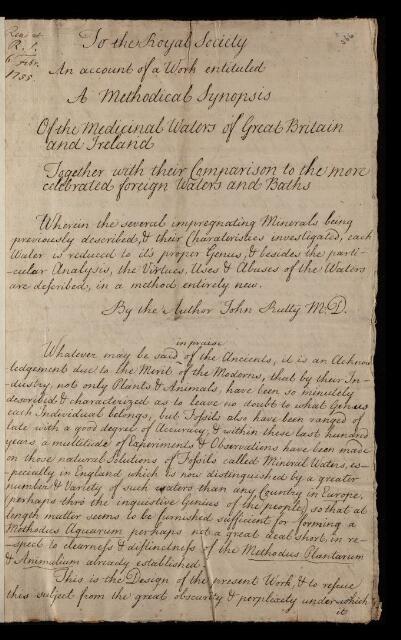 Read at
R. S.
6 Febr.
1755.
To the Royal Society
An account of a Work entituled
A Methodical Synopsis
Of the Medicinal Waters of Great Britain
and Ireland
Together with their Comparison to the more
celebrated foreign Waters and Baths
Wherein the several impregnating Minerals being
previously described, & their Charateristics investigated, each
Water is reduced to its proper Genus, & besides the parti-
-cular Analysis, the Virtues, Uses & Abuses of the Waters
are described, in a method entirely new.
By the Author John Rutty M.D.
in praise
Whatever may be said of the Ancients, it is an Acknow
ledgement due to the Merit of the Moderns, that by their In-
dustry, not only Plants & Animals, have been so minutely
described & characterized as to leave no doubt to what Genus
each Individual belongs, but Fossils also have been ranged of
late with a good degree of Accuracy, & within these last hundred
years, a multitude of Experiments & Observations have been made
on those natural Solutions of Fossils called Mineral Waters, es-
-pecially in England which is now distinguished by a greater
number & Variety of such waters than any Country in Europe,
perhaps thro the inquisitive Genius of the people, so that at
length matter seems to be furnished sufficient for forming a
Methodus Aquarum perhaps not a great deal short in re-
-spect to clearness & distinctness of the Methodus Plantarum
& Animalium already established.
This is the Design of the present Work, & to rescue
this subject from the great obscurity & perplexity under which
it